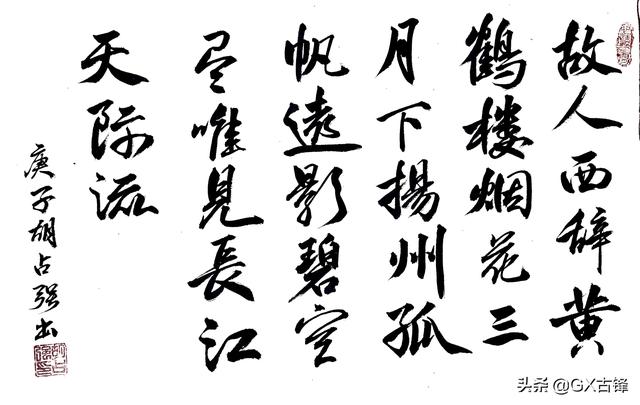 故人西辞黄
鶴楼烟花三
月下揚州孤
帆遠影碧空
尽唯見長江
天际流
庚子胡占强书
头条 @GX古锋